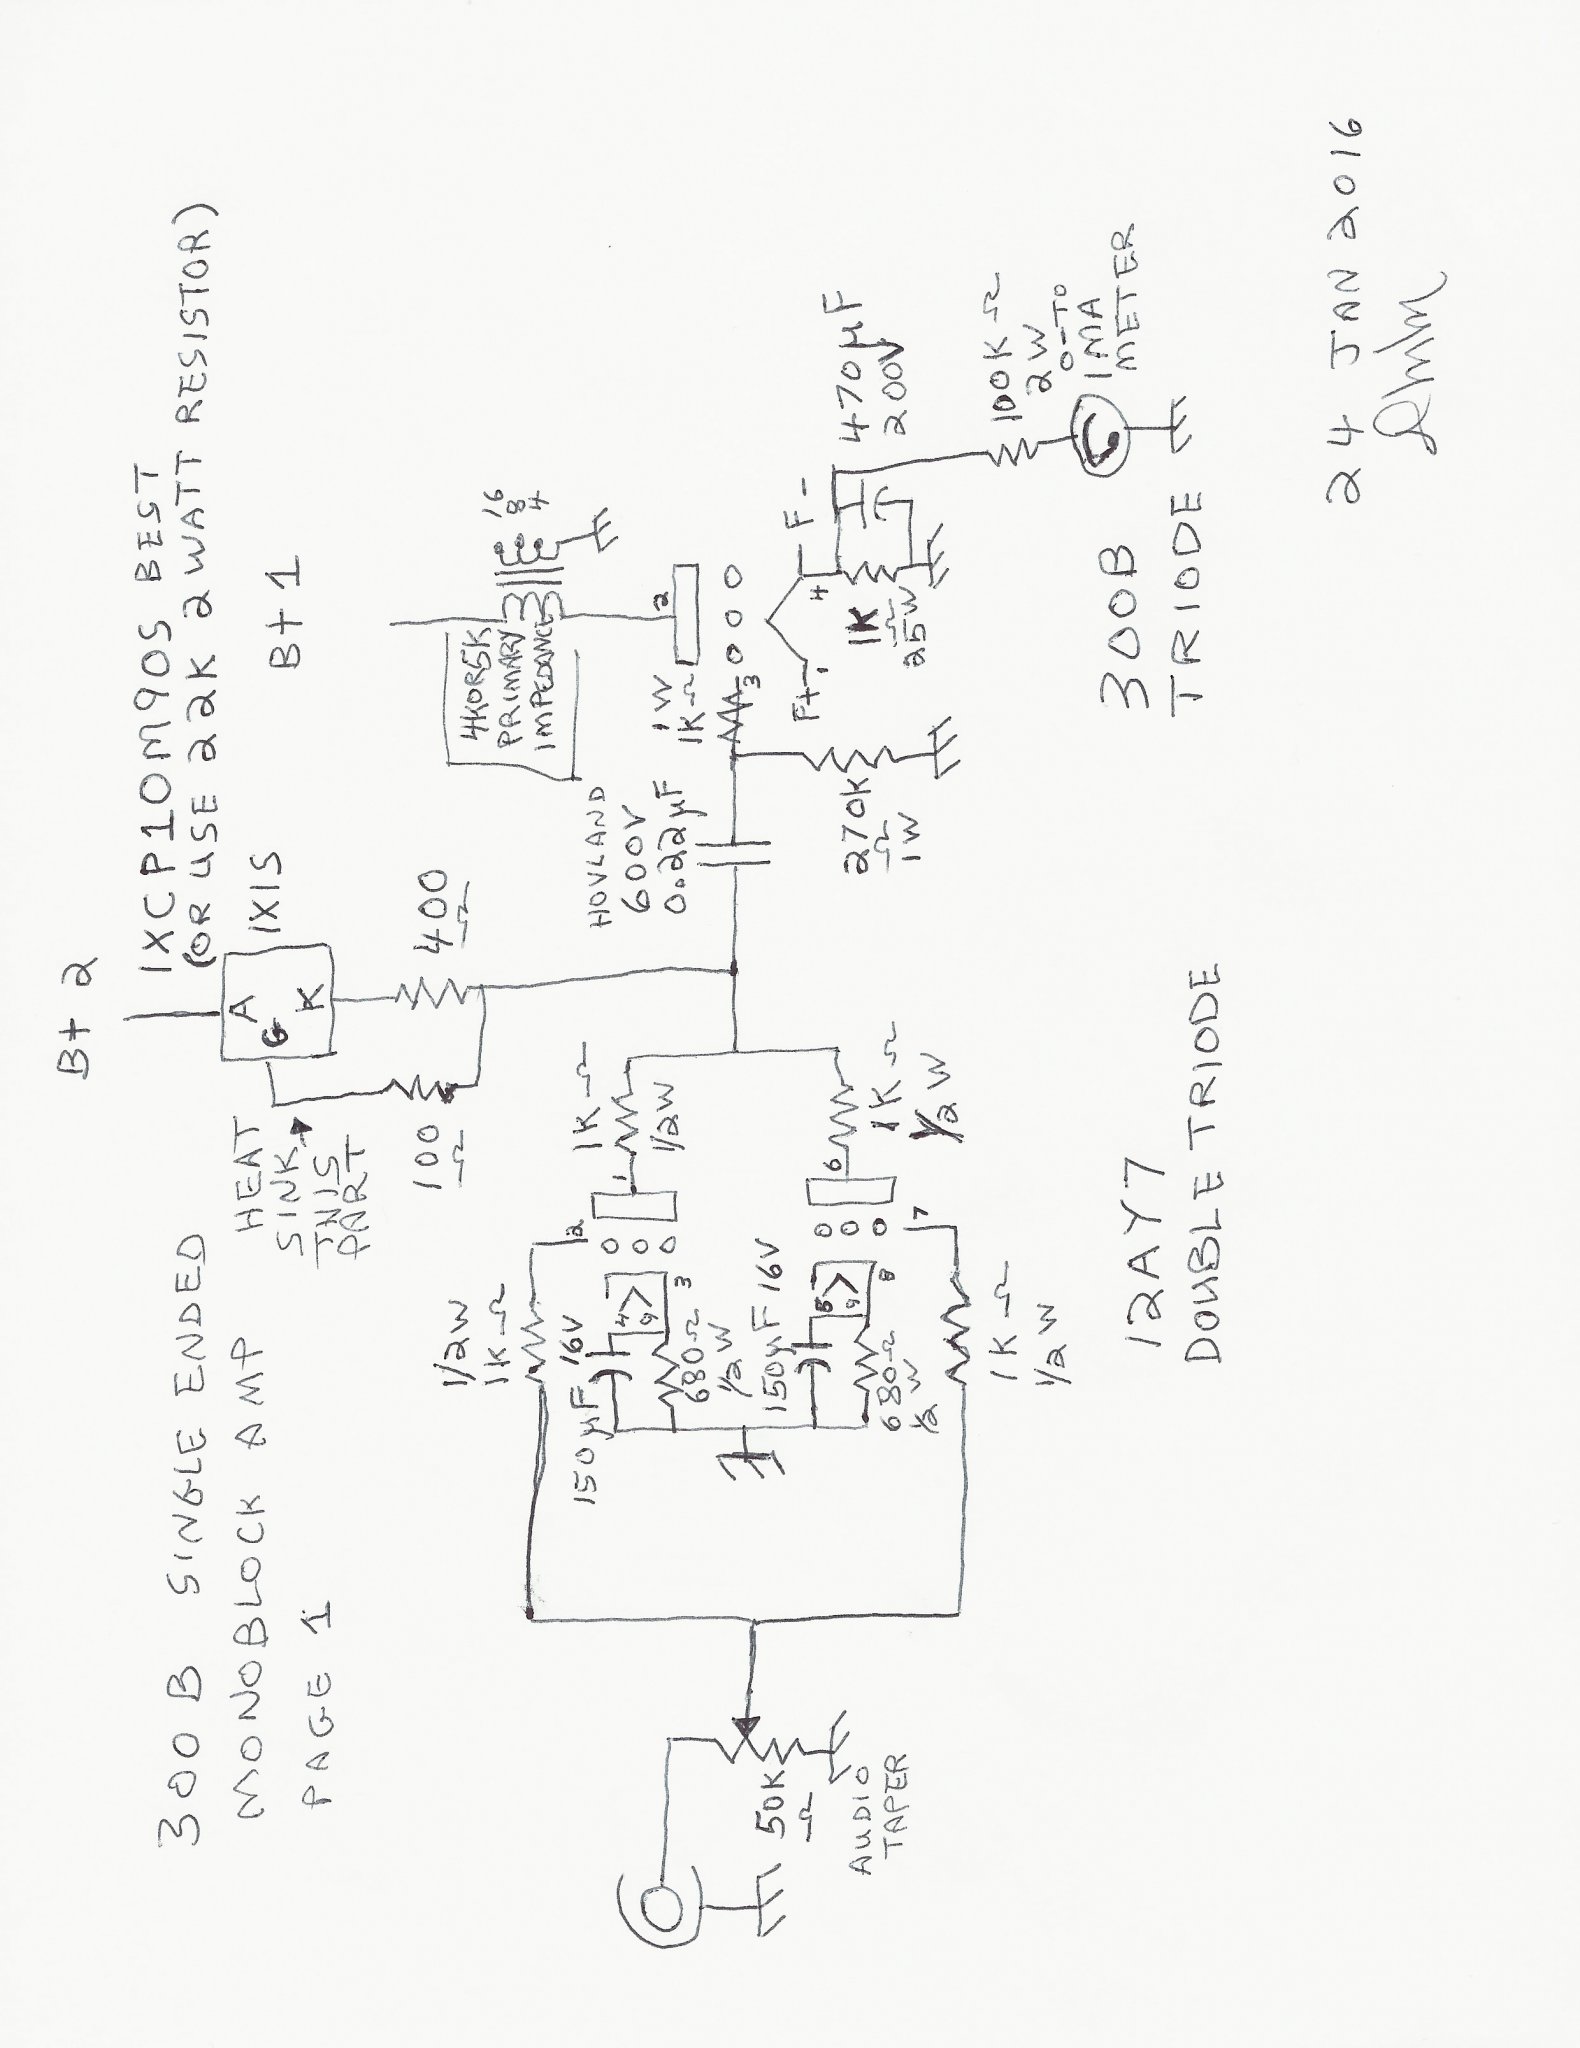 B+2
IXCP10M90S BEST
(OR USE 22K 2 WATT RESISTOR)
IXIS
B+1
300B SINGLE ENDED
MONOBLOCK AMP
PAGE 1
HEAT
SINK
THIS
PART
A
G
K
400
Ω
100
Ω
4KOR5K
PRIMARY
IMPEDANCE
16
8
4
2
1W
1KΩ
3
HOVLAND
600V
0.22µF
270K
Ω
1W
F+
1
F-
4
1K
Ω
25W
470µF
200V
100KΩ
2W
0-TO
1MA
METER
1/2W
1KΩ
2
1
1KΩ
1/2W
150µF 16V
4 5
9
3
680Ω
1/2W
150µF 16V
5
9
8
680Ω
1/2
W
6
7
1KΩ
1/2W
1KΩ
1/2W
50K
Ω
AUDIO
TAPER
12AY7
DOUBLE TRIODE
300B
TRIODE
24 JAN 2016